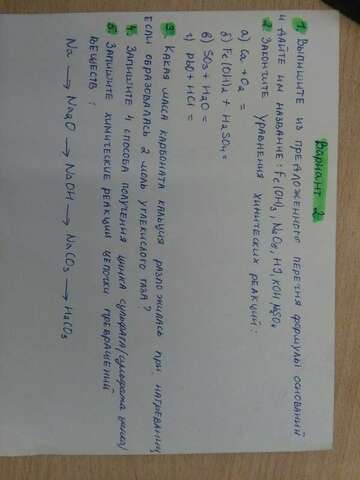 Вариант 2
1. Выпишите из предложенного перечня формулы оснований
и дайте им название: Fe(OH)3, Na2O, HI, KOH, MgSO4
2. Закончите уравнения химических реакций:
а) Ca + O2 =
б) Fe(OH)2 + H2SO4 =
в) SO3 + H2O =
г) PbO + HCl =
3. Какая масса карбоната кальция разложилась при нагревании,
если образовалась 2 моль углекислого газа?
4. Запишите 4 способа получения цинка сульфата/сульфата цинка/
5. Запишите химические реакции цепочки превращений
веществ:
Na → Na2O → NaOH → NaCO3 → H2CO3